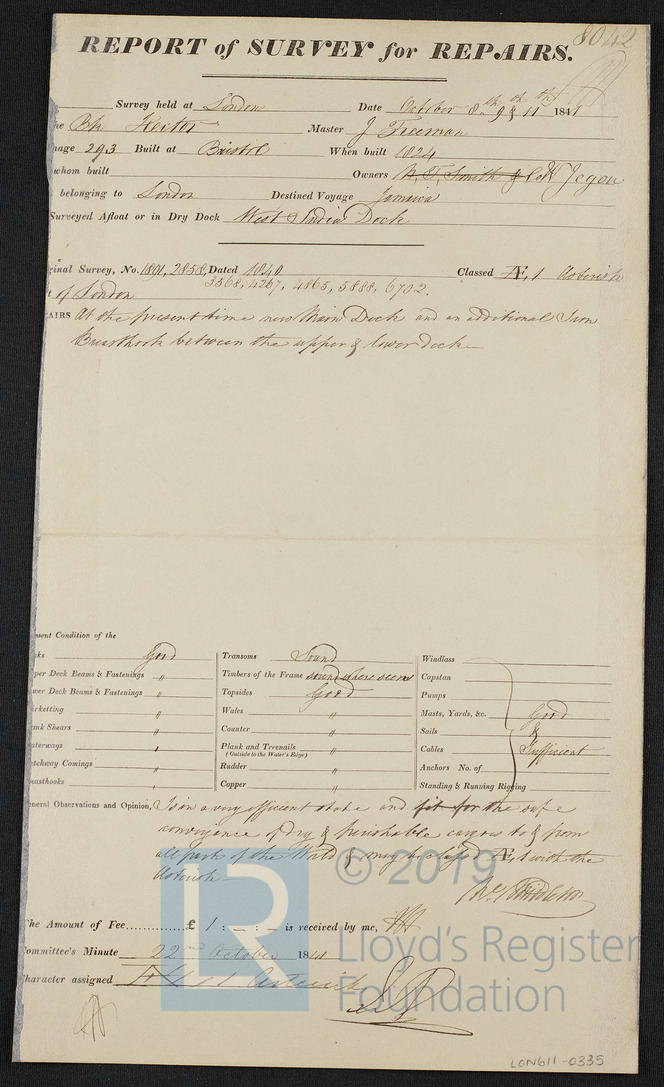 8042
REPORT of SURVEY for REPAIRS.
Survey held at London Date October 8th 9th & 11th 1841
he Bk Hector Master J Freeman
nage 293 Built at Bristol When built 1824
whom built Owners Smith & Co
belonging to London Destined Voyage Jamaica
Surveyed Afloat or in Dry Dock West India Dock
ginal Survey, No. 1891, 2858, Dated 1840 Classed Æ, 1 Asterisk
3568, 4267, 4865, 5888, 6702.
of London
AIRS At the present time new Main Deck and an additional Iron
Breasthook between the upper & lower deck
sent Condition of the
ks Good
per Deck Beams & Fastenings "
wer Deck Beams & Fastenings "
irketting "
ank Shears "
aterways "
atchway Comings "
easthooks "
Transoms Sound
Timbers of the Frame sound where seen
Topsides Good
Wales "
Counter "
Plank and Treenails "
(Outside to the Water's Edge)
Rudder "
Copper "
Windlass
Capstan
Pumps
Masts, Yards, &c. Good
Sails &
Cables Sufficient
Anchors No. of
Standing & Running Rigging
eneral Observations and Opinion, Is in a very efficient state and fit for the safe
conveyance of Dry & perishable cargoes to & from
all parts of the World & may be classed Æ, 1 with the
Asterisk
Middleton
The Amount of Fee............£ 1 : – : – is received by me,
Committee's Minute 22nd October 1841
Character assigned Asterisk
© 2019
LR
Lloyd's Register
Foundation
LON611-0335